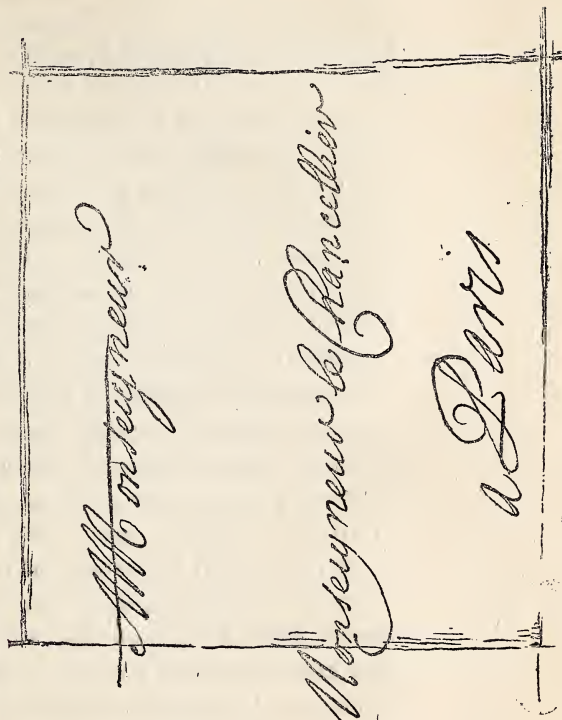 A Monseigneur
Monseigneur le Chancellier
a Paris